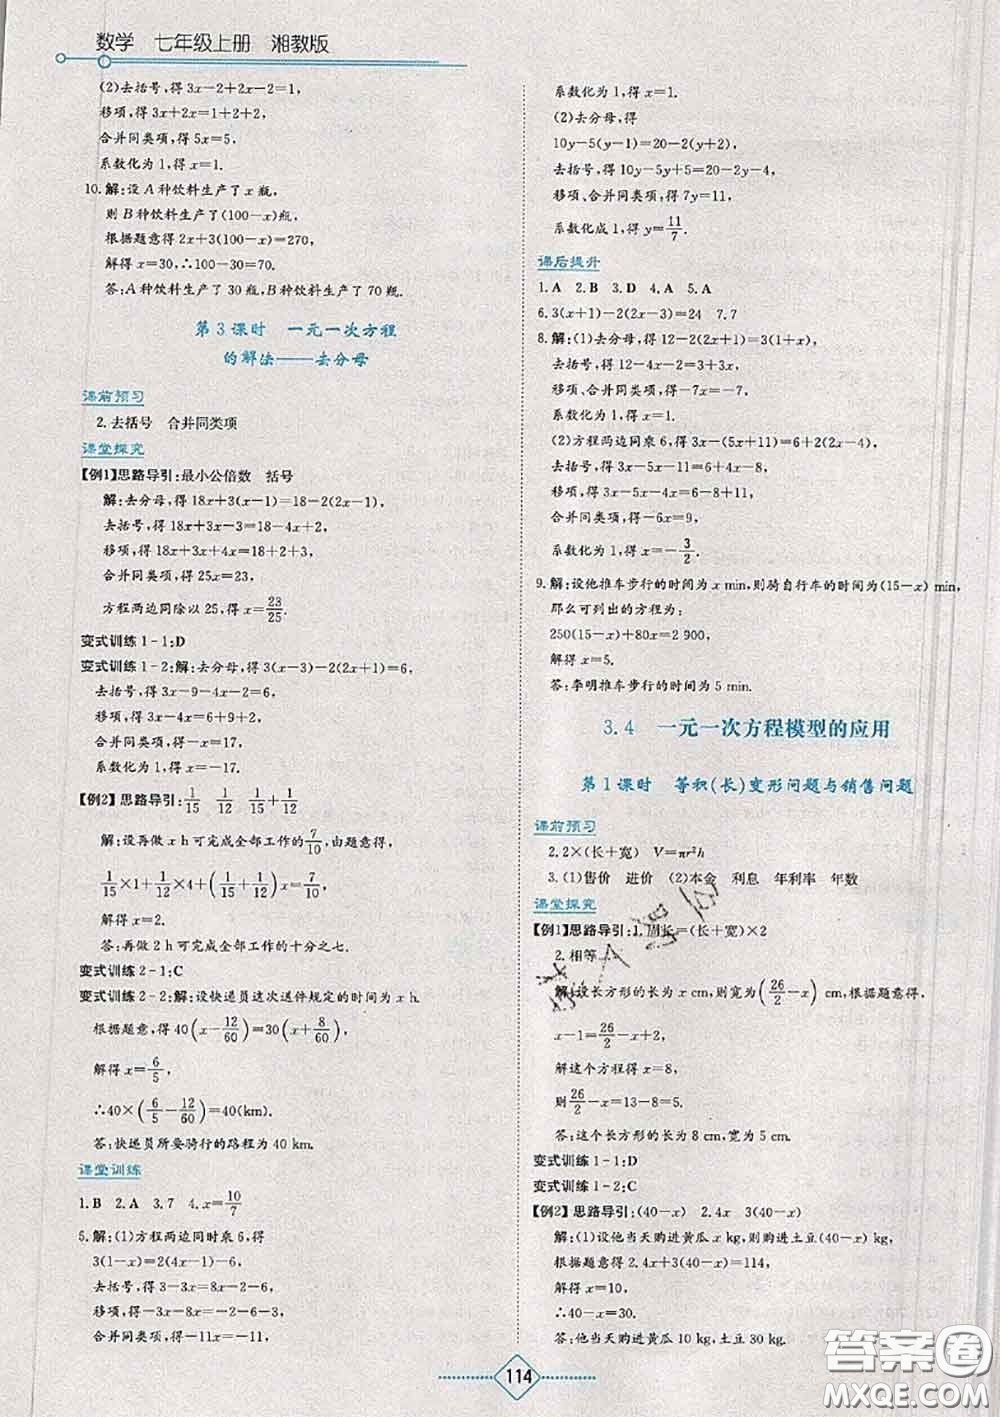 数学 七年级上册 湘教版
(2)去括号,得 3x-2+2x-2=1,
移项,得 3x+2x=1+2+2,
合并同类项,得 5x=5,
系数化为 1,得 x=1.
10.解:设 A 种饮料生产了 x 瓶,
则 B 种饮料生产了(100-x)瓶,
根据题意得 2x+3(100-x)=270,
解得 x=30,∴100-30=70.
答:A 种饮料生产了 30 瓶,B 种饮料生产了 70 瓶.
第 3 课时 一元一次方程
的解法——去分母
课前预习
2.去括号 合并同类项
课堂探究
【例1】思路导引:最小公倍数 括号
解:去分母,得 18x+3(x-1)=18-2(2x-1),
去括号,得 18x+3x-3=18-4x+2,
移项,得 18x+3x+4x=18+2+3,
合并同类项,得 25x=23,
方程两边同除以 25,得 x=23/25.
变式训练 1-1:D
变式训练 1-2:解:去分母,得 3(x-3)-2(2x+1)=6,
去括号,得 3x-9-4x-2=6,
移项,得 3x-4x=6+9+2,
合并同类项,得-x=17,
系数化为 1,得 x=-17.
【例2】思路导引:1/15 1/12 1/15+1/12
解:设再做 x h 可完成全部工作的7/10,由题意得,
1/15×1+1/12×4+(1/15+1/12)x=7/10,
解得 x=2.
答:再做 2 h 可完成全部工作的十分之七.
变式训练 2-1:C
变式训练 2-2:解:设快递员这次送件规定的时间为 x h.
根据题意,得 40(x-12/60)=30(x+8/60),
解得 x=6/5,
∴40×(6/5-12/60)=40(km).
答:快递员所要骑行的路程为 40 km.
课堂训练
1.B 2.A 3.7 4.x=10/7
5.解:(1)方程两边同时乘 6,得
3(1-x)=2(4x-1)-6,
去括号,得 3-3x=8x-2-6,
移项,得-3x-8x=-2-6-3,
合并同类项,得-11x=-11,
系数化为 1,得 x=1.
(2)去分母,得
10y-5(y-1)=20-2(y+2),
去括号,得 10y-5y+5=20-2y-4,
移项、合并同类项,得 7y=11,
系数化成 1,得 y=11/7.
课后提升
1.A 2.B 3.D 4.A 5.A
6.3(x+1)-2(2x-3)=24 7.7
8.解:(1)去分母,得 12-2(2x+1)=3(1+x),
去括号,得 12-4x-2=3+3x,
移项、合并同类项,得-7x=-7,
系数化为 1,得 x=1.
(2)方程两边同乘 6,得 3x-(5x+11)=6+2(2x-4),
去括号,得 3x-5x-11=6+4x-8,
移项,得 3x-5x-4x=6-8+11,
合并同类项,得-6x=9,
系数化为 1,得 x=-3/2.
9.解:设他推车步行的时间为 x min,则骑自行车的时间为(15-x) min,
那么可列出的方程为:
250(15-x)+80x=2 900,
解得 x=5.
答:李明推车步行的时间为 5 min.
3.4 一元一次方程模型的应用
第 1 课时 等积(长)变形问题与销售问题
课前预习
2.2×(长+宽) V=πr²h
3.(1)售价 进价 (2)本金 利息 年利率 年数
课堂探究
【例1】思路导引:1.周长=(长+宽)×2
2.相等
解:设长方形的长为 x cm,则宽为(26/2-x) cm,根据题意得,
x-1=26/2-x+2,
解这个方程得 x=8,
则26/2-x=13-8=5,
答:这个长方形的长为 8 cm,宽为 5 cm.
变式训练 1-1:D
变式训练 1-2:C
【例2】思路导引:(40-x) 2.4x 3(40-x)
解:(1)设他当天购进黄瓜 x kg,则购进土豆(40-x) kg,
根据题意,得 2.4x+3(40-x)=114,
解得 x=10.
∴40-x=30.
答:他当天购进黄瓜 10 kg,土豆 30 kg.
114
答案圈
MXQE.COM